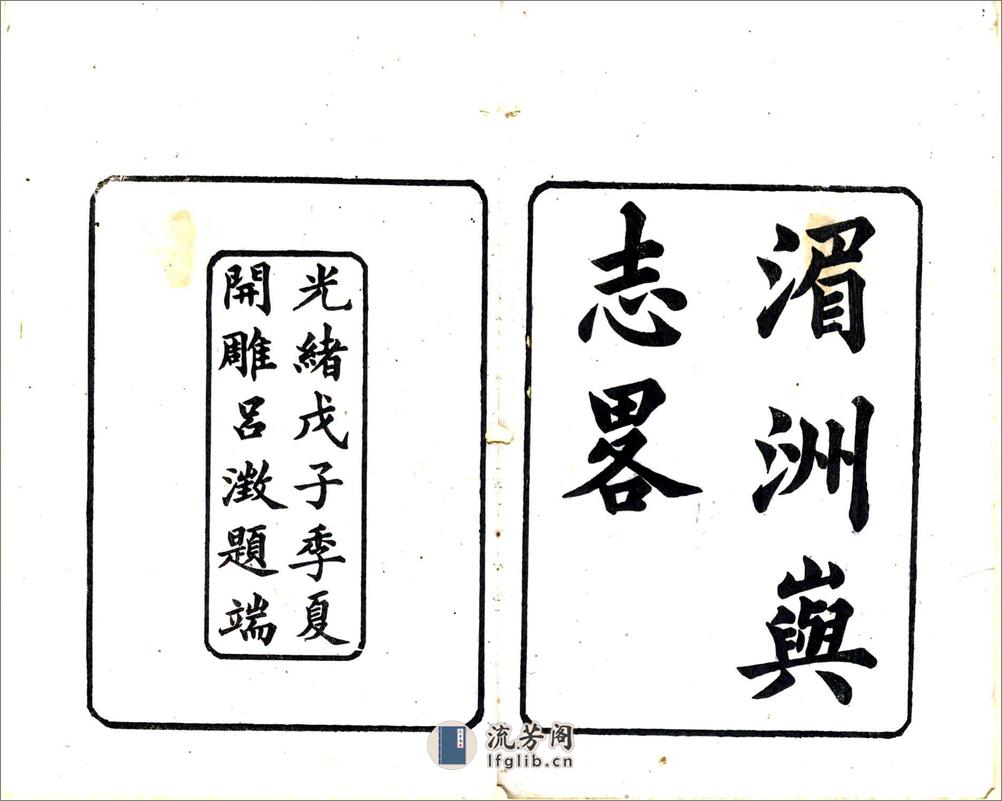 湄洲嶼
志畧
光緒戊子季夏
開雕呂澂題端
流芳阁
lfglib.cn